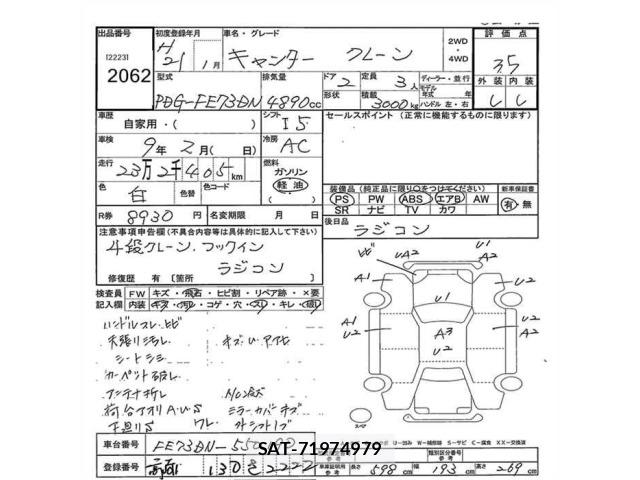 出品番号 初度登録年月 車名・グレード 2WD・4WD 評価点
122231 H21 1月 キャンター クレーン 3.5
2062 外装 内装
型式 排気量 ドア 2 定員 3人 ディーラー・並行
PDG-FE73DN 4890cc 形状 積載 3000kg モデル年式 年 ハンドル 左・右
車歴 自家用・( ) シフト I5 セールスポイント (正常に機能するものに限ります)
車検 9年2月( 日) 冷房 AC
走行 23万2千405km 燃料 ガソリン 軽油
色 白 色替 色コード 装備品(純正品に限り○をつけてください) 新車保証書
PS PW ABS エアB AW 有・無
R券 8930円 名変期限 月 日 SR ナビ TV カワ
注意事項申告欄(不具合内容等は具体的に記入して下さい) 後日品 ラジコン
4段クレーン、フックイン
ラジコン
修復歴 有 [箇所 ]
検査員記入欄 FW キズ・飛石・ヒビ割・リペア跡・×要
内装 キズ・汚れ・コゲ・穴・スレ・キレ・破れ
ヒビ UA2 U1 A2
A1 U2
U1
A1 U2 A3 U2 U2
A1 A2
ハンドルスレ ヒビ
天張り汚れ
シートシミ
カーペット破れ
アンテナ折レ
荷台アオリA・U・S ワレ
下廻りS
ミラーカバーキズ
スペア
車台番号 FE73DN-55
SAT-71974979
登録番号 130 さ 2222 車庫証明用参考 長さ 598cm 幅 193cm 類別区分番号参考 高さ 269cm